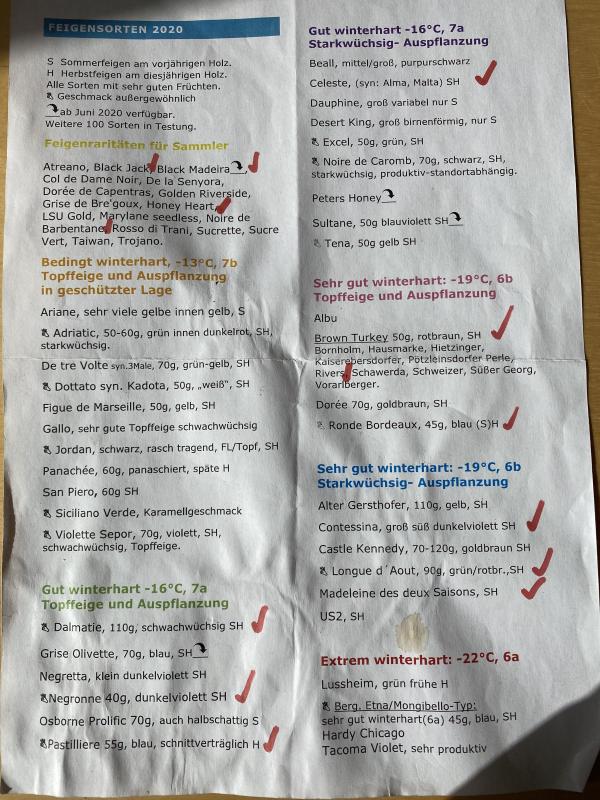 FEIGENSORTEN 2020
S Sommerfeigen am vorjährigen Holz.
H Herbstfeigen am diesjährigen Holz.
Alle Sorten mit sehr guten Früchten.
Geschmack außergewöhnlich
ab Juni 2020 verfügbar.
Weitere 100 Sorten in Testung.
Feigenraritäten für Sammler
Atreano, Black Jack, Black Madeira,
Col de Dame Noir, De la Senyora,
Dorée de Capentras, Golden Riverside,
Grise de Bre'goux, Honey Heart,
LSU Gold, Marylane seedless, Noire de
Barbentane, Rosso di Trani, Sucrette, Sucre
Vert, Taiwan, Trojano.
Bedingt winterhart, -13°C, 7b
Topffeige und Auspflanzung
in geschützter Lage
Ariane, sehr viele gelbe innen gelb, S
Adriatic, 50-60g, grün innen dunkelrot, SH,
starkwüchsig.
De tre Volte syn.3Male, 70g, grün-gelb, SH
Dottato syn. Kadota, 50g, „weiß", SH
Figue de Marseille, 50g, gelb, SH
Gallo, sehr gute Topffeige schwachwüchsig
Jordan, schwarz, rasch tragend, FL/Topf, SH
Panachée, 60g, panaschiert, späte H
San Piero, 60g SH
Siciliano Verde, Karamellgeschmack
Violette Sepor, 70g, violett, SH,
schwachwüchsig, Topffeige.
Gut winterhart -16°C, 7a
Topffeige und Auspflanzung
Dalmatie, 110g, schwachwüchsig SH
Grise Olivette, 70g, blau, SH
Negretta, klein dunkelviolett SH
Negronne 40g, dunkelviolett SH
Osborne Prolific 70g, auch halbschattig S
Pastilliere 55g, blau, schnittverträglich H
Gut winterhart -16°C, 7a
Starkwüchsig- Auspflanzung
Beall, mittel/groß, purpurschwarz
Celeste, (syn: Alma, Malta) SH
Dauphine, groß variabel nur S
Desert King, groß birnenförmig, nur S
Excel, 50g, grün, SH
Noire de Caromb, 70g, schwarz, SH,
starkwüchsig, produktiv-standortabhängig.
Peters Honey
Sultane, 50g blauviolett SH
Tena, 50g gelb SH
Sehr gut winterhart: -19°C, 6b
Topffeige und Auspflanzung
Albu
Brown Turkey 50g, rotbraun, SH
Bornholm, Hausmarke, Hietzinger,
Kaiserebersdorfer, Pötzleinsdorfer Perle,
Rivers, Schawerda, Schweizer, Süßer Georg,
Vorarlberger.
Dorée 70g, goldbraun, SH
Ronde Bordeaux, 45g, blau (S)H
Sehr gut winterhart: -19°C, 6b
Starkwüchsig- Auspflanzung
Alter Gersthofer, 110g, gelb, SH
Contessina, groß süß dunkelviolett SH
Castle Kennedy, 70-120g, goldbraun SH
Longue d´Aout, 90g, grün/rotbr.,SH
Madeleine des deux Saisons, SH
US2, SH
Extrem winterhart: -22°C, 6a
Lussheim, grün frühe H
Berg. Etna/Mongibello-Typ:
sehr gut winterhart(6a) 45g, blau, SH
Hardy Chicago
Tacoma Violet, sehr produktiv